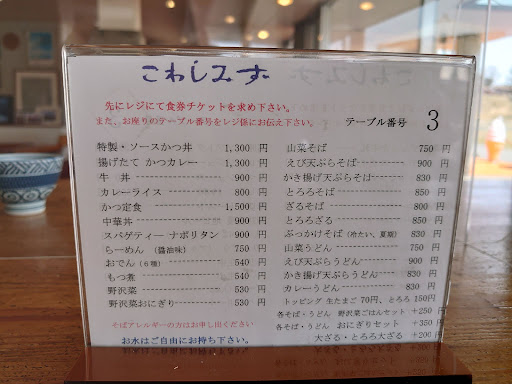 こわしみず
先にレジにて食券チケットを求め下さい。
また、お座りのテーブル番号をレジ係にお伝え下さい。
テーブル番号 3
特製・ソースかつ丼 1,300 円
揚げたて かつカレー 1,300 円
牛 丼 900 円
カレーライス 800 円
かつ定食 1,500 円
中華丼 900 円
スパゲティー ナポリタン 900 円
らーめん (醤油味) 750 円
おでん (6種) 540 円
もつ煮 540 円
野沢菜 530 円
野沢菜おにぎり 530 円
そばアレルギーの方はお申し出ください
お水はご自由にお持ち下さい。
山菜そば 750 円
えび天ぷらそば 900 円
かき揚げ天ぷらそば 830 円
とろろそば 850 円
ざるそば 800 円
とろろざる 850 円
ぶっかけそば (冷たい、夏期) 830 円
山菜うどん 750 円
えび天ぷらうどん 900 円
かき揚げ天ぷらうどん 830 円
カレーうどん 830 円
トッピング 生たまご 70円、とろろ 150円
各そば・うどん 野沢菜ごはんセット +250 円
各そば・うどん おにぎりセット +350 円
大ざる・とろろ大ざる +200 円